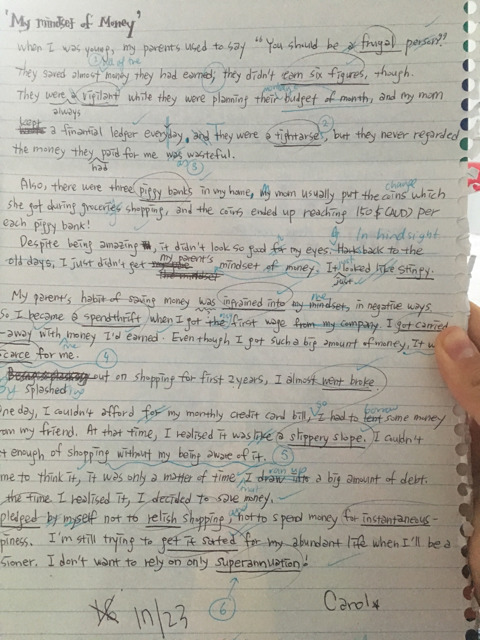 'My mindset of Money'
When I was young, my parents used to say "You should be a frugal person."
① all of the
They saved almost money they had earned, they didn't earn six figures, though.
They were a vigilant while they were planning their budget of month, and my mom
always ②
kept a finantial ledger everyday, and they were a tightarse, but they never regarded
the money they paid for me was wasteful.
had as ③
Also, there were three piggy banks in my home, my mom usually put the coins which
change
she got during groceries shopping, and the coins ended up reaching 150$ CAUD per
each piggy bank!
In hindsight
Despite being amazing, it didn't look so good for my eyes. Harksback to the
my parent's
old days, I just didn't get mindset of money. It looked like stingy.
Just
My parents, habit of saving money was ingrained into my mindset, in negative ways.
So I became a spendthrift when I got the first wage from my company. I got carried
-away with money I'd earned. Even though I got such a big amount of money, It w
carce for me. ④
out on shopping for first 2 years, I almost went broke.
splashed
ne day, I couldn't afford for my monthly credit card bill, I had to lent some money
so borrow
om my friend. At that time, I realised it was like a slippery slope. I couldn't
t enough of shopping without my being aware of it. ⑤
ran up
me to think it, it was only a matter of time, I draw into a big amount of debt.
the time I realised it, I decided to save money.
pledged by myself not to relish shopping, not to spend money for instantaneous-
piness. I'm still trying to get it sorted for my abundant life when I'll be a
sioner. I don't want to rely on only superannuation!
⑥
17/23
Carol